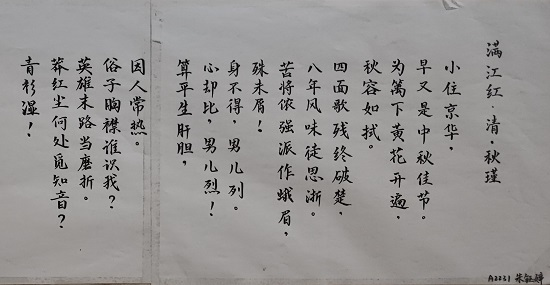 满江红·清·秋瑾
小住京华，
早又是中秋佳节。
为篱下黄花开遍，
秋容如拭。
四面歌残终破楚，
八年风味徒思浙。
苦将侬强派作蛾眉，
殊未屑！
身不得，男儿列。
心却比，男儿烈！
算平生肝胆，
因人常热。
俗子胸襟谁识我？
英雄末路当磨折。
莽红尘何处觅知音？
青衫湿！
A2231